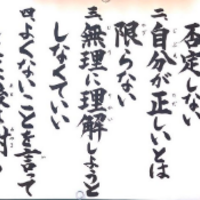 否定しない
二、自分が正しいとは
限らない
三、無理に理解しようと
しなくていい
四、よくないことを言って